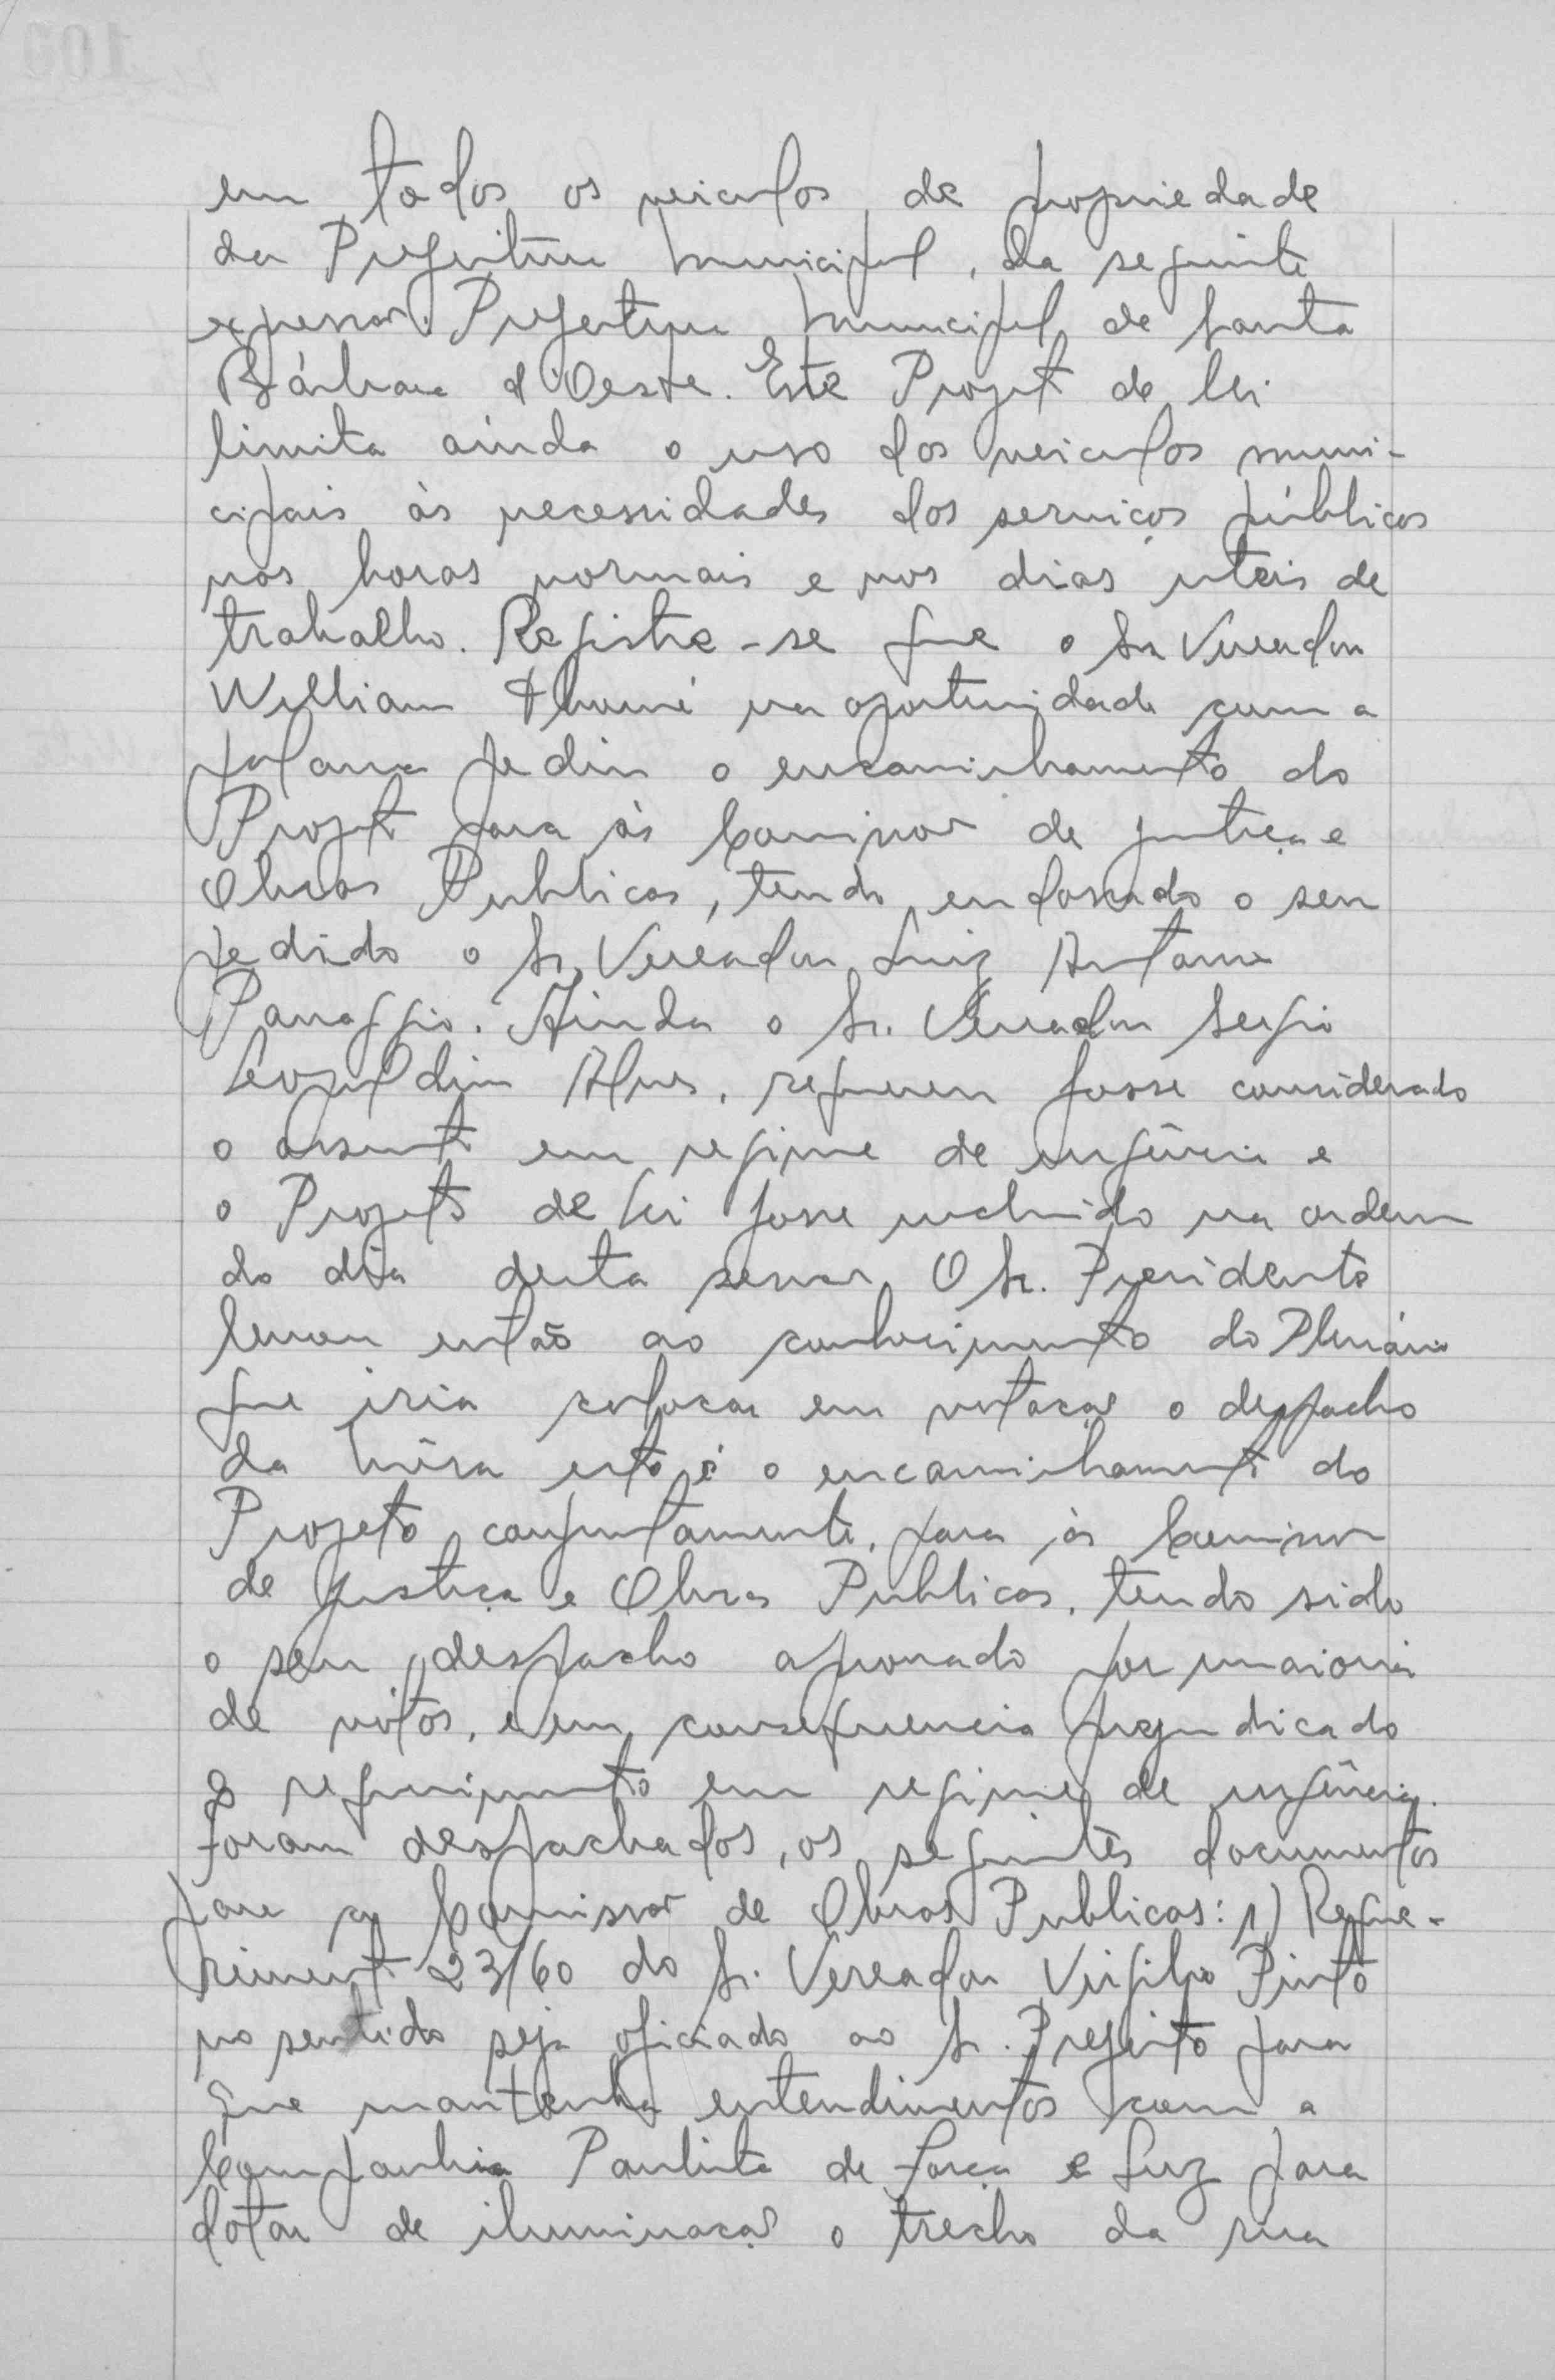 em todos os veiculos, de propriedade
da Prefeitura Municipal, da seguinte
expressão: Prefeitura Municipal de Santa
Bárbara d'Oeste. Este Projeto de lei
limita ainda o uso dos veiculos muni-
cipais às necessidades dos serviços públicos
nas horas normais e nos dias uteis de
trabalho. Registre-se que o Sr Vereador
William Thomé na oportunidade com a
palavra pediu o encaminhamento do
Projeto para às Comissão de justiça e
Obras Publicas, tendo endossado o seu
pedido o Sr. Vereador Luiz Antonio
Panaggio. Ainda o Sr. Vereador Sergio
Leopoldino Alves, requereu fosse considerado
o assunto em regime de urgência e
o Projeto de lei fosse incluido na ordem
do dia desta sessão. O Sr. Presidente
levou então ao conhecimento do Plenário
que iria colocar em votação o despacho
da Mêsa isto é o encaminhamento do
Projeto, conjuntamente, para às Comissão
de Justiça e Obras Publicas, tendo sido
o seu despacho aprovado por maioria
de vótos, e em consequencia prejudicado
o requerimento em regime de urgência.
Foram despachados, os seguintes documentos
para a Comissão de Obras Publicas: 1) Reque-
rimento 23/60 do Sr. Vereador Virgilio Pinto
no sentido seja oficiado ao Sr. Prefeito para
que mantenha entendimentos com a
Companhia Paulista de Força e Luz para
dotar de iluminação o trecho da rua